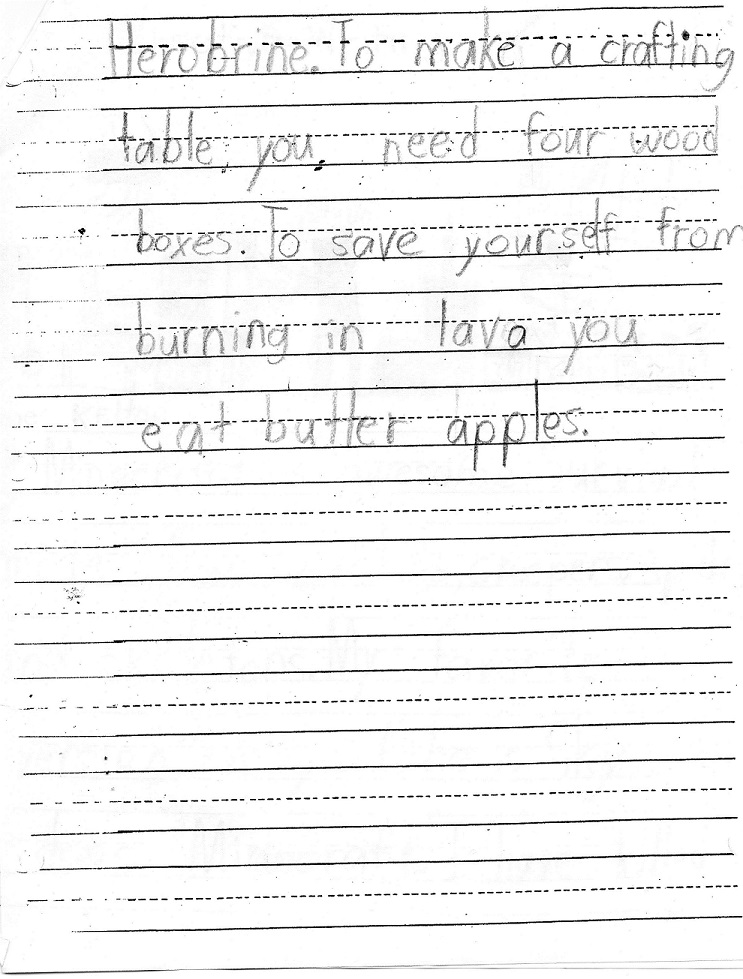 Herobrine. To make a crafting
table, you, need four wood
boxes. To save yourself from
burning in lava you
eat butter apples.